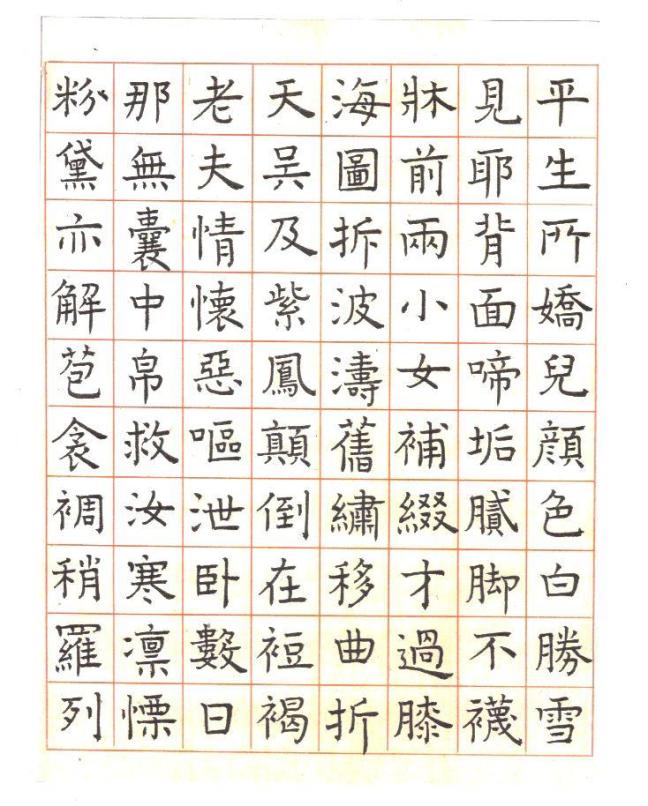 平生所嬌兒顔色白勝雪
見耶背面啼垢膩脚不襪
牀前兩小女補綴才過膝
海圖拆波濤舊繡移曲折
天吴及紫鳳顛倒在裋褐
老夫情懷惡嘔泄卧數日
那無囊中帛救汝寒凛慄
粉黛亦解苞衾裯稍羅列